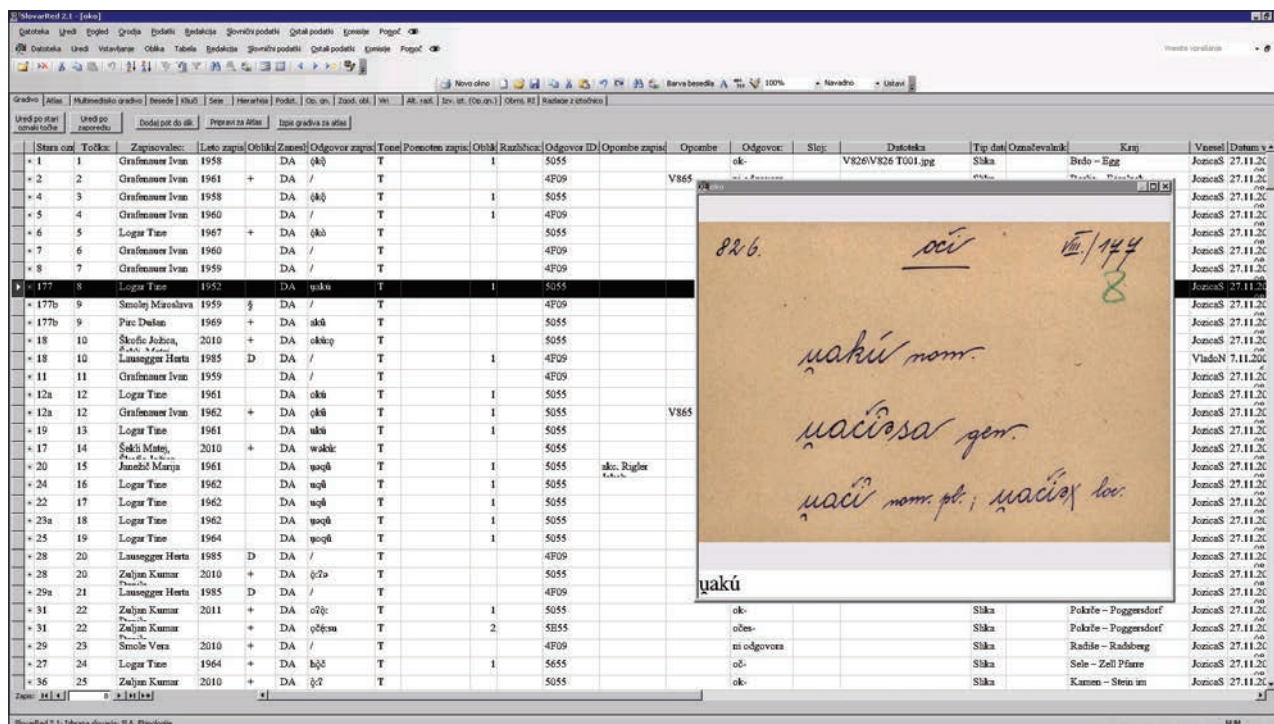 SlovarRed 2.1 - [oko]
Datoteka Uredi Pogled Orodja Podatki Redakcija Slovnični podatki Ostali podatki Komisije Pomoč
Datoteka Uredi Vstavljanje Oblika Tabela Redakcija Slovnični podatki Ostali podatki Komisije Pomoč
Novo okno Barva besedila 100% Navadno Ustavi
Gradivo Atlas Multimedijsko gradivo Besede Ključ Seje Hierarhija Podst. Op. gn. Zgod. obl. Viri Alt. razl. Izv. ist. (Op.gn.) Obrni. RI Razlage z iztočnico
Uredi po stari oznaki točke Uredi po zaporedju Dodaj pot do slik Pripravi za Atlas Izpis gradiva za atlas
Stara ozn Točka: Zapisovalec: Leto zapis Oblika Zanesl Odgovor zapis: Tone Poenoten zapis: Oblik Različica: Odgovor ID: Opombe zapiso Opombe Odgovor: Sloj: Datoteka Tip dato Označevalnik Kraj Vnesel Datum v
1 1 Grafenauer Ivan 1958 DA T 1 5055 ok- V826\V826 T001.jpg Slika Brdo – Egg JozicaS 27.11.20
2 2 Grafenauer Ivan 1961 + DA / T 4F09 V865 JozicaS 27.11.20
4 3 Grafenauer Ivan 1958 DA T 1 5055 JozicaS 27.11.20
5 4 Grafenauer Ivan 1960 DA / T 1 4F09 JozicaS 27.11.20
6 5 Logar Tine 1967 + DA T 5055 JozicaS 27.11.20
7 6 Grafenauer Ivan 1960 DA / T 4F09 JozicaS 27.11.20
8 7 Grafenauer Ivan 1959 DA / T 4F09 JozicaS 27.11.20
177 8 Logar Tine 1952 DA u̯akú T 1 5055 JozicaS 27.11.20
177b 9 Smolej Miroslava 1959 § DA / T 4F09 JozicaS 27.11.20
177b 9 Pirc Dušan 1969 + DA T 5055 JozicaS 27.11.20
18 10 Škofic Jožica, 2010 + DA T 5055 JozicaS 27.11.20
18 10 Lausegger Herta 1985 D DA / T 1 4F09 VladoN 7.11.200
11 11 Grafenauer Ivan 1959 DA / T 4F09 JozicaS 27.11.20
12a 12 Logar Tine 1961 DA T 1 5055 JozicaS 27.11.20
12a 12 Grafenauer Ivan 1962 + DA T 1 5055 V865 JozicaS 27.11.20
19 13 Logar Tine 1961 DA T 1 5055 JozicaS 27.11.20
17 14 Šekli Matej, 2010 + DA T 5055 JozicaS 27.11.20
20 15 Janežič Marija 1961 DA T 1 5055 akc. Rigler JozicaS 27.11.20
24 16 Logar Tine 1962 DA T 1 5055 JozicaS 27.11.20
22 17 Logar Tine 1962 DA T 1 5055 JozicaS 27.11.20
23a 18 Logar Tine 1962 DA T 1 5055 JozicaS 27.11.20
25 19 Logar Tine 1964 DA T 1 5055 JozicaS 27.11.20
28 20 Lausegger Herta 1985 D DA / T 4F09 JozicaS 27.11.20
28 20 Zuljan Kumar 2010 + DA T 5055 JozicaS 27.11.20
29a 21 Lausegger Herta 1985 D DA / T 4F09 JozicaS 27.11.20
31 22 Zuljan Kumar 2011 + DA T 1 5055 ok- Slika Pokrče – Poggersdorf JozicaS 27.11.20
31 22 Zuljan Kumar + DA T 2 5E55 očes- Slika Pokrče – Poggersdorf JozicaS 27.11.20
29 23 Smole Vera 2010 + DA / T 4F09 ni odgovora Slika Radiše – Radsberg JozicaS 27.11.20
27 24 Logar Tine 1964 + DA T 1 5655 oč- Slika Sele – Zell Pfarre JozicaS 27.11.20
36 25 Zuljan Kumar 2010 + DA T 5055 ok- Slika Kamen – Stein im JozicaS 27.11.20
oko
826. oči VIII./177
8
u̯akú nom.
u̯ačíəsa gen.
u̯ačí nom. pl.; u̯ačíəx loc.
u̯akú
Zapis: 0
SlovarRed 2.1: Izbrana slovarja: SLA, Etimologija NUM